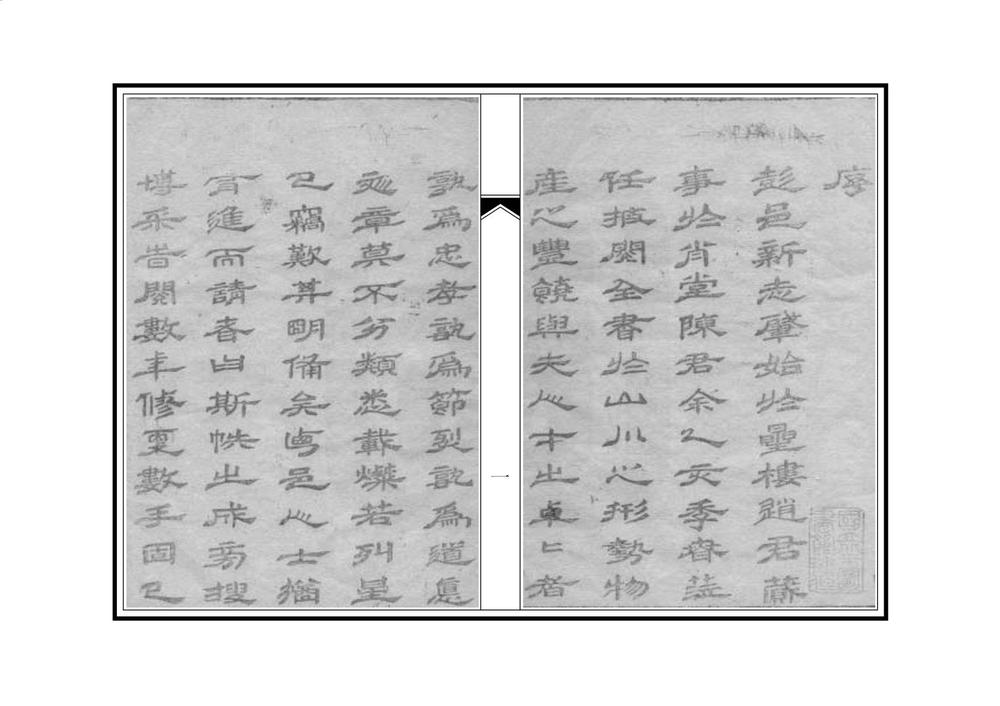 序
彭邑新志肇始於壘樓趙君蕆
事於肖堂陳君余乙亥季春蒞
任披閱全書於山川之形勢物
產之豐饒與夫人才之卓卓者
孰為忠孝孰為節烈孰為道悳
文章莫不分類悉載燦若列星
已竊歎其明備矣邑人士猶
有進而請者曰斯帙之成旁搜
博采旹閱數年修更數手固已
一